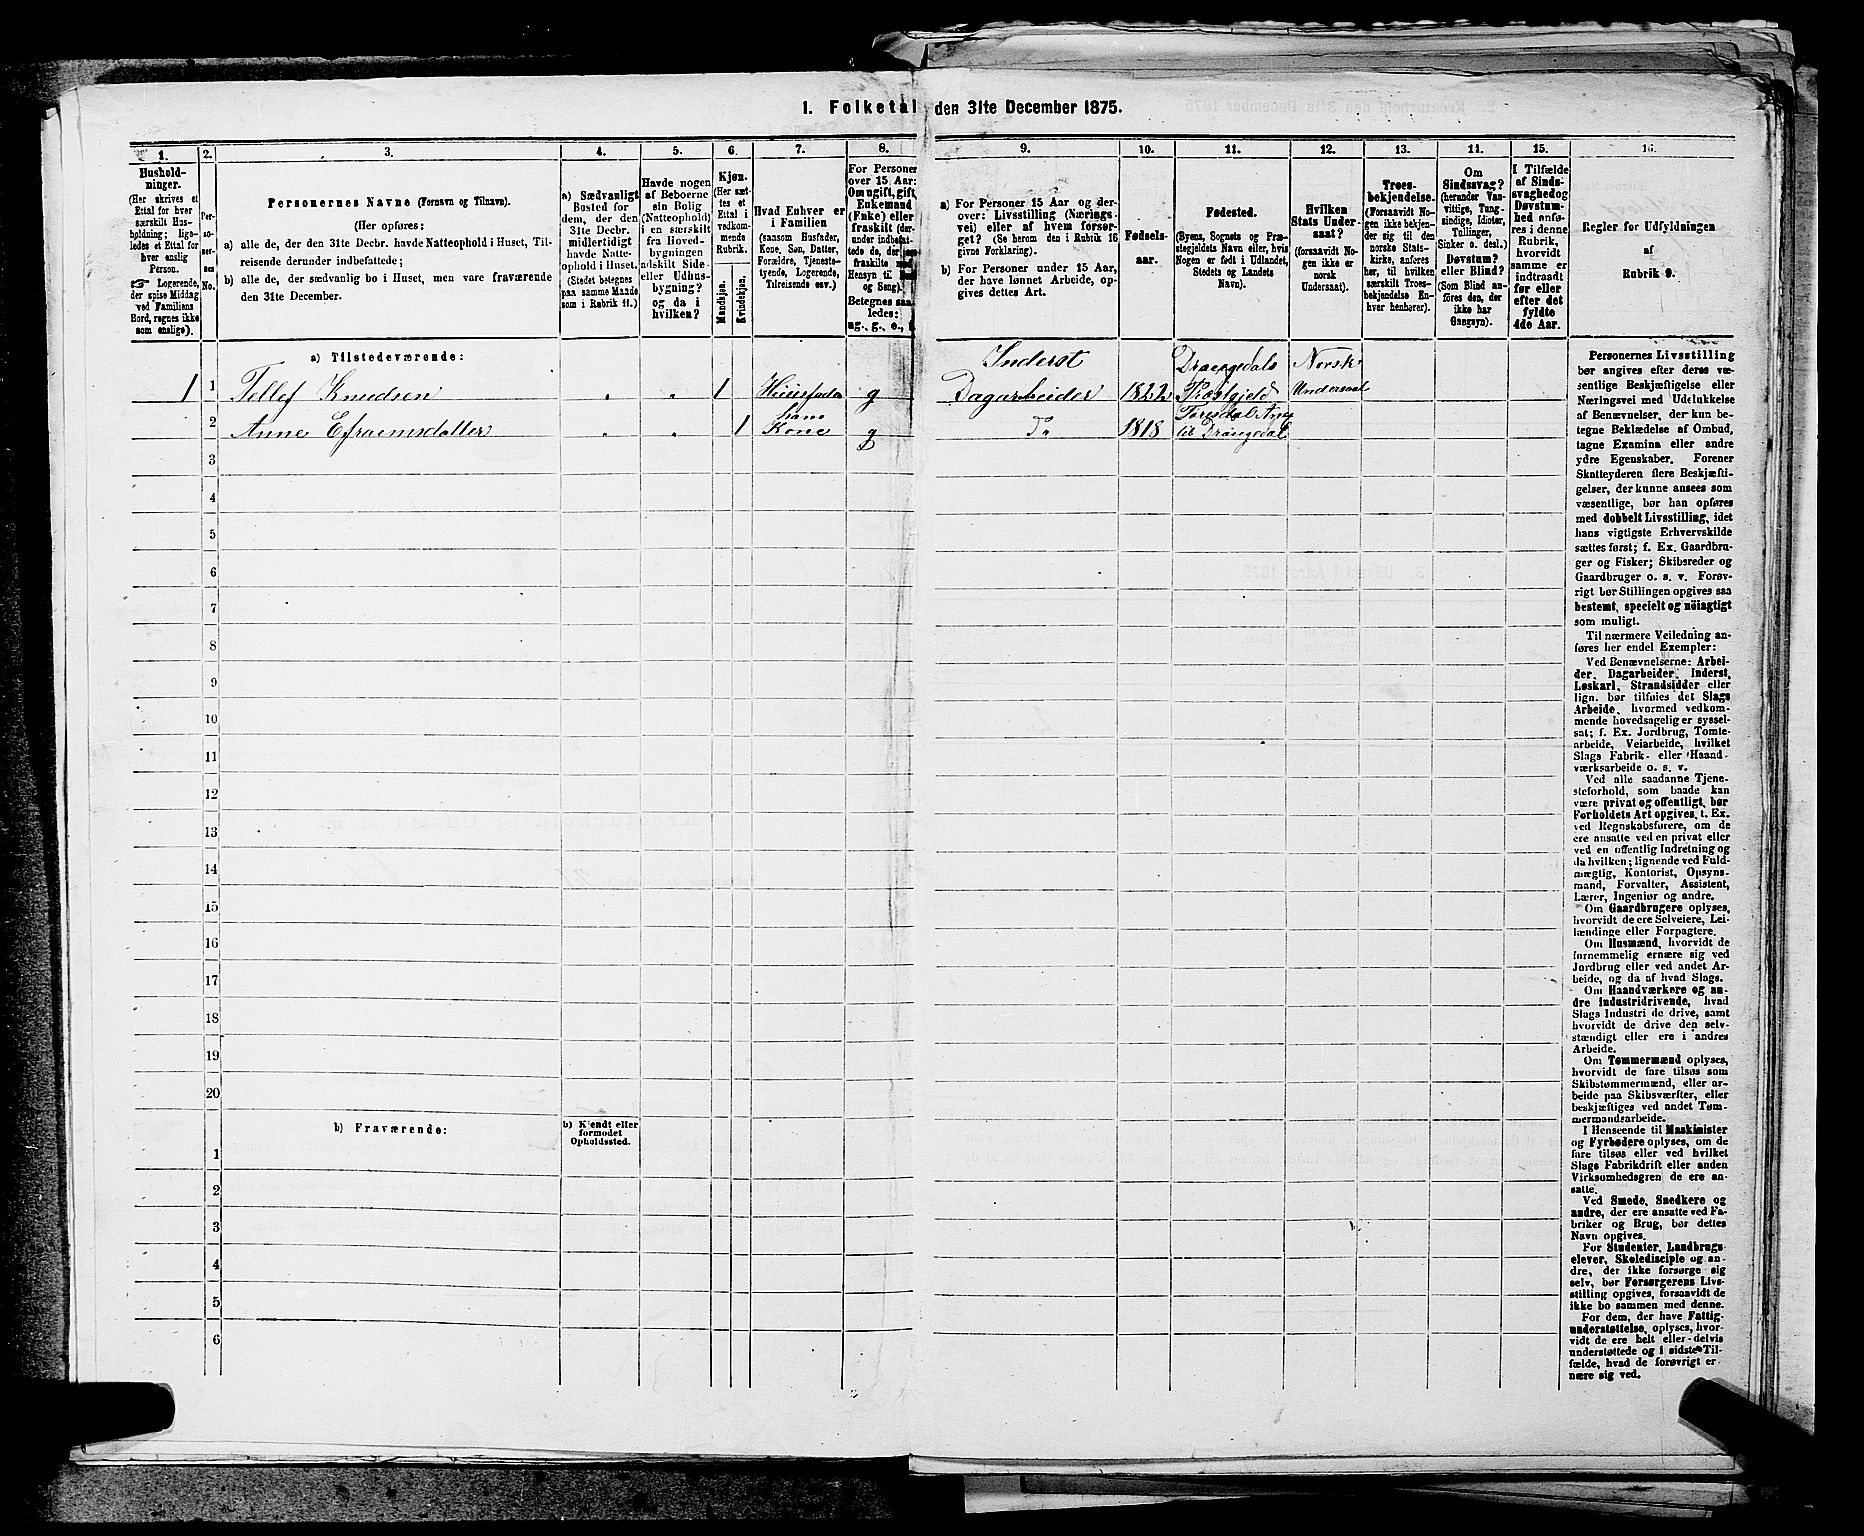 1. Folketal den 31te December 1875.
1.
2.
3.
4.
5.
6.
7.
8.
9.
10.
11.
12.
13.
11.
15.
16.
Hushold-
ninger.
(Her skrives et
Ettal for hver
særskilt Hus-
holdning; liga-
ledes et Ettal for
hver enslig
Person.
☞ Logerende,
der spise Middag
ved Familiens
Bord, regnes ikke
som enslige).
Per-
so-
ner-
nes
No.
Personernes Navne (Fornavn og Tilnavn).
(Her opføres:
a) alle de, der den 31te Decbr. havde Natteophold i Huset, Til-
reisende derunder indbefattede;
b) alle de, der sædvanlig bo i Huset, men vare fraværende
den 31te December.
a) Sædvanligt
Bosted for
dem, der den
31te Decbr.
midlertidigt
havde Natte-
ophold i Huset.
(Stedet betegnes
paa samme Maade
som i Rubrik 11.)
Havde nogen
af Beboerne
ein Bolig
(Natteophold)
i en særskilt
fra Hoved-
bygningen
adskilt Side-
eller Udhus-
bygning?
og da i
hvilken?
Kjøn.
(Her sæt-
tes et
Ettal i
vedkom-
mende
Rubrik.
Mandkjøn.
Kvindekjøn.
Hvad Enhver er
i Familien
(saasom Husfader,
Kone, Søn, Datter,
Forældre, Tjeneste-
tyende, Logerende,
Tilreisende osv.)
For Personer
over 15 Aar:
Om ugift, gift,
Enkemand
(Enke) eller
fraskilt (der-
under indbefat-
tede de, der ere
fraskilte med
Hensyn til Bord
og Seng).
Betegnes saa-
ledes:
ug., g., e.,
a) For Personer 15 Aar og der-
over: Livsstilling (Nærings-
vei) eller af hvem forsør-
get? (Se herom den i Rubrik 16
givne Forklaring).
b) For Personer under 15 Aar,
der have lønnet Arbeide, op-
gives dettes Art.
Fødsels-
aar.
Fødested.
(Byens, Sognets og Præ-
stegjeldets Navn eller, hvis
Nogen er født i Udlandet,
Stedets og Landets
Navn).
Hvilken
Stats Under-
saat?
(forsaavidt No-
gen ikke er
norsk
Undersaat).
Troes-
bekjendelse.
(Forsaavidt No-
gen ikke bekjen-
der sig til den
norske Stats-
kirke, anføres
her, til hvilken
særskilt Troes-
bekjendelse En-
hver henhører).
Om
Sindssvag?
(herunder Van-
vittige, Tung-
sindige, Idioter,
Tullinger,
Sinker o. desl.)
Døvstum?
eller Blind?
(Som Blind an-
føres den, der
ikke har
Gangsyn).
I Tilfælde
af Sinds-
svaghed og
Døvstum-
hed anfø-
res i denne
Rubrik,
hvorvidt
samme er
indtraadt
før eller
efter det
fyldte
4de Aar.
Regler for Udfyldningen
af
Rubrik 9.
a) Tilstedeværende:
Inderst Drangedals Norsk
1 1 Tellef Knudsen „ „ 1 Huusfader g Dagarbeider 1822 Præstgjeld Undersaat
hans
2 Anne Efraemsdatter „ „ 1 Kone g Do 1818 til Drangedal
3
4
5
6
7
8
9
10
11
12
13
14
15
16
17
18
19
20
b) Fraværende:
b) Kjendt eller
formodet
Opholdssted.
1
2
3
4
5
6
Personernes Livsstilling
bør angives efter deres væ-
sentlige Beskjæftigelse eller
Næringsvei med Udelukkelse
af Benævnelser, der kun be-
tegne Beklædelse af Ombud,
tagne Examina eller andre
ydre Egenskaber. Forener
Skatteyderen flere Beskjæfti-
gelser, der kunne ansees som
væsentlige, bør han opføres
med dobbelt Livsstilling, idet
hans vigtigste Erhvervskilde
sættes først; f. Ex. Gaardbru-
ger og Fisker; Skibsreder og
Gaardbruger o. s. v. Forøv-
rigt bør Stillingen opgives saa
bestemt, specielt og nøiagtigt
som muligt.
Til nærmere Veiledning an-
føres her endel Exempler:
Ved Benævnelserne: Arbei-
der, Dagarbeider, Inderst,
Løskarl, Strandsidder eller
lign. bør tilføies det Slags
Arbeide, hvormed vedkom-
mende hovedsagelig er syssel-
sat; f. Ex. Jordbrug, Tomte-
arbeide, Veiarbeide, hvilket
Slags Fabrik- eller Haand-
værksarbeide o. s. v.
Ved alle saadanne Tjene-
steforhold, som baade kan
være privat og offentligt, bør
Forholdets Art opgives, t. Ex.
ved Regnskabsførere, om de
ere ansatte ved en privat eller
ved en offentlig Indretning og
da hvilken; lignende ved Fuld-
mægtig, Kontorist, Opsyns-
mand, Forvalter, Assistent,
Lærer, Ingeniør og andre.
Om Gaardbrugere oplyses,
hvorvidt de ere Selveiere, Lei-
lændinge eller Forpagtere.
Om Husmænd, hvorvidt de
fornemmelig ernære sig ved
Jordbrug eller ved andet Ar-
beide, og da af hvad Slags.
Om Haandværkere og an-
dre Industridrivende, hvad
Slags Industri de drive, samt
hvorvidt de drive den selv-
stændigt eller ere i andres
Arbeide.
Om Tømmermænd oplyses,
hvorvidt de fare tilsøs som
Skibstømmermænd, eller ar-
beide paa Skibsværfter, eller
beskjæftiges ved andet Tøm-
mermandsarbeide.
I Henseende til Maskinister
og Fyrbødere oplyses, om de
fare tilsøs eller ved hvilket
Slags Fabrikdrift eller anden
Virksomhedsgren de ere an-
satte.
Ved Smede, Snedkere og
andre, der ere ansatte ved Fa-
briker og Brug, bør dettes
Navn opgives.
For Studenter, Landbrugs-
elever, Skoledisciple og an-
dre, der ikke forsørge sig
selv, bør Forsørgerens Livs-
stilling opgives, forsaavidt de
ikke bo sammen med denne.
For dem, der have Fattig-
understøttelse, oplyses, hvor-
vidt de ere helt eller delvis
understøttede og i sidste Til-
fælde, hvad de forøvrigt er-
nære sig ved.